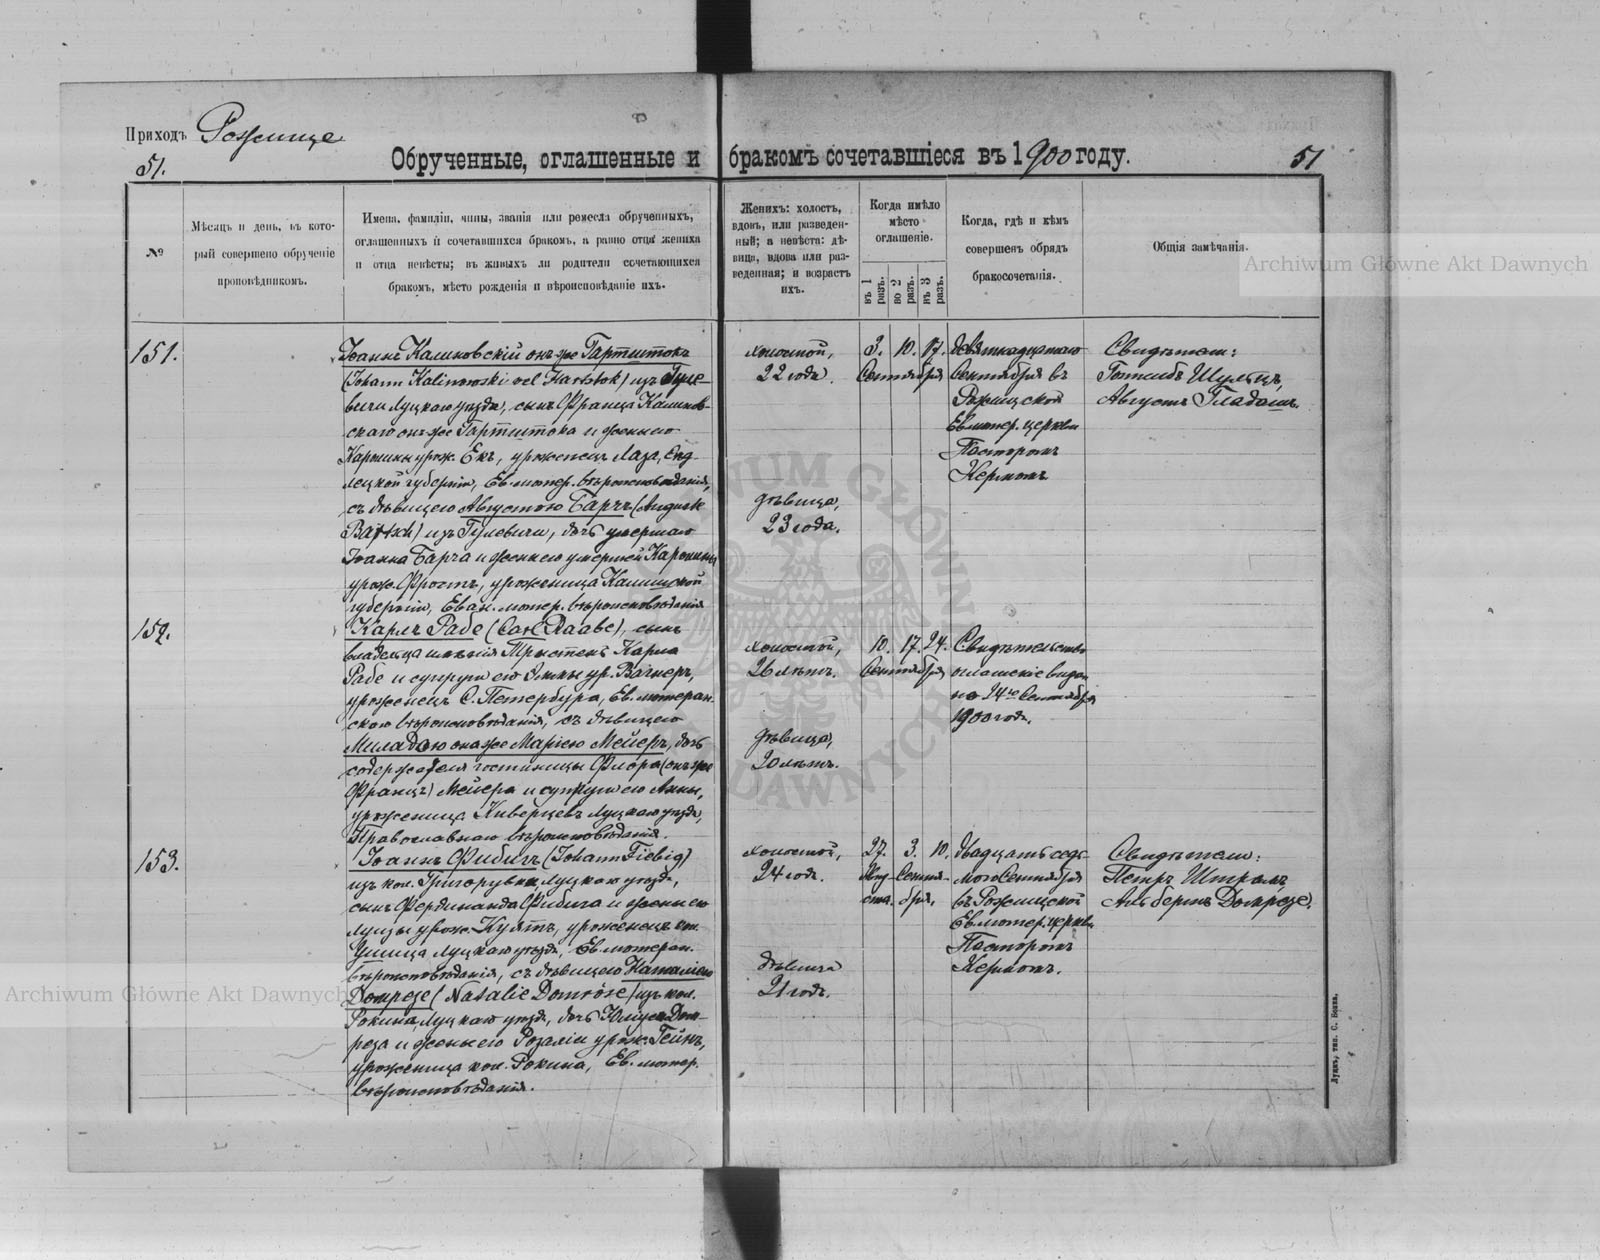 Приходъ Рожище
51.
Обрученные, оглашенные и бракомъ сочетавшіеся въ 1900 году.
51
№
Мѣсяцъ и день, въ кото-
рый совершено обрученіе
проповѣдникомъ.
Имена, фамиліи, чины, званія или ремесла обрученныхъ,
оглашенныхъ и сочетавшихся бракомъ, а равно отца жениха
и отца невѣсты; въ живыхъ ли родители сочетающихся
бракомъ, мѣсто рожденія и вѣроисповѣданіе ихъ.
Женихъ: холостъ,
вдовъ, или разведен-
ный; а невѣста: дѣ-
вица, вдова или раз-
веденная; и возрастъ
ихъ.
Когда имѣло
мѣсто
оглашеніе.
въ 1 разъ.
во 2 разъ.
въ 3 разъ.
Когда, гдѣ и кѣмъ
совершенъ обрядъ
бракосочетанія.
Общія замѣчанія.
Archiwum Główne Akt Dawnych
151.
Іоаннъ Калиновскій онъ же Гартштокъ
(Johann Kalinowski vel Hartstok) изъ Гуле-
вичи Луцкаго уѣзда, сынъ Франца Калинов-
скаго онъ же Гартштока и жены его
Каролины урож. Екъ, уроженецъ Лаза, Сѣд-
лецкой губерніи, Ев. лютер. вѣроисповѣданія,
съ дѣвицею Августою Барчъ (Auguste
Bartsch) изъ Гулевичи, дочь умершаго
Іоанна Барча и жены его умершей Каролины
урож. Фростъ, уроженица Калишской
губерніи, Еван. лютер. вѣроисповѣданія
холостой,
22 года.
дѣвица,
23 года.
3. 10. 17.
Сентября
Девятнадцатаго
Сентября въ
Рожищской
Ев. лютер. церкви
Пасторомъ
Кермомъ.
Свидѣтели:
Готлибъ Шульцъ,
Августъ Гладашъ.
152.
Карлъ Рабе (Carl Raabe), сынъ
владельца имѣнія Тристенъ Карла
Рабе и супруги его Эммы ур. Вагнеръ,
уроженецъ С. Петербура, Ев. лютеран-
скаго вѣроисповѣданія, съ дѣвицею
Миладою она же Маріею Мейеръ, дочь
содержателя гостинницы Флора (онъ же
Францъ) Мейера и супруги его Анны,
уроженица Киверцевъ Луцкаго уѣзда,
Православнаго вѣроисповѣданія.
холостой,
26 лѣтъ.
дѣвица,
20 лѣтъ.
10. 17. 24.
Сентября
Свидѣтельство
оглашеніе выда
но 24го Сентября
1900 года.
153.
Іоаннъ Фибигъ (Johann Fiebig)
изъ кол. Григорувка, Луцкаго уѣзда,
сынъ Фердинанда Фибига и жены его
Луизы урож. Куятъ, уроженецъ кол.
Луцкаго уѣзда, Ев. лютеран.
вѣроисповѣданія, съ дѣвицею Наталіею
Домрезе (Natalie Domröse) изъ кол.
Рокина, Луцкаго уѣзда, дочь Юлиуса Дом-
реза и жены его Розаліи урож. Гейнъ,
уроженица кол. Рокина, Ев. лютер.
вѣроисповѣданія.
холостой,
24 год.
дѣвица
21 годъ.
27. 3. 10.
Авгу- Сентя-
ста. бря.
Двадцать седь-
мого Сентября
въ Рожищской
Ев. лютер. церкви
Пасторомъ
Кермомъ.
Свидѣтели:
Петръ Штраль,
Альбертъ Домрезе.
Archiwum Główne Akt Dawnych
Луцкъ, тип. С. Бокъ.